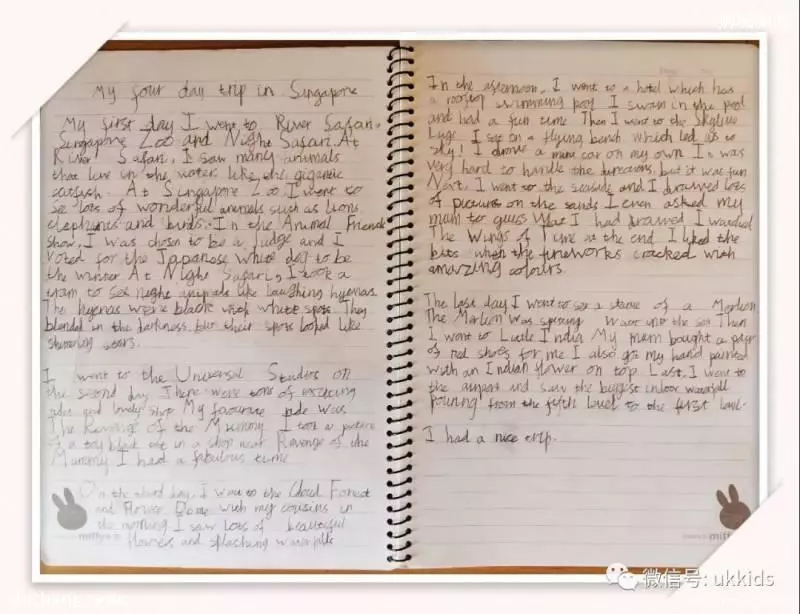 My four day trip in Singapore
My first day I went to River Safari,
Singapore Zoo and Night Safari. At
River Safari, I saw many animals
that live in the water like the gigantic
catfish. At Singapore Zoo, I went to
see lots of wonderful animals such as lions
elephants and birds. In the Animal Friends
Show, I was chosen to be a judge and I
voted for the Japanese white dog to be
the winner At Night Safari, I took a
tram to see night animals like laughing hyenas.
The hyenas were black with white spots. They
blended in the darkness but their spots looked like
shimmering stars.
I went to the Universal Studios on
the second day There were tons of exciting
rides and lovely shop My favourite ride was
The Revenge of the Mummy I took a picture
of a toy black cat in a shop near Revenge of the
Mummy I had a fabulous time
On the third day, I went to the Cloud Forest
and Flower Dome with my cousins in
the morning I saw lots of beautiful
flowers and splashing waterfalls
miffy
In the afternoon, I went to a hotel which has
a rooftop swimming pool I swam in the pool
and had a fun time Then I went to the Skyline
Luge. I sat on a flying bench which led us to
sky! I drove a mini car on my own It was
very hard to handle the directions, but it was fun
Next, I went to the seaside and I drawed lots
of pictures on the sands I even asked my
mum to guess what I had drawed I watched
The Wings of Time at the end I liked the
bits when the fireworks cracked with
amazing colours.
The last day I went to see a statue of a Merlion
The Merlion was spraying water into the sea Then
I went to Little India My mum bought a pair
of red shoes for me I also got my hand painted
with an Indian flower on top Last, I went to
the airport and saw the biggest indoor waterfall
pouring from the fifth level to the first level.
I had a nice trip.
miffy
微信号: ukkids